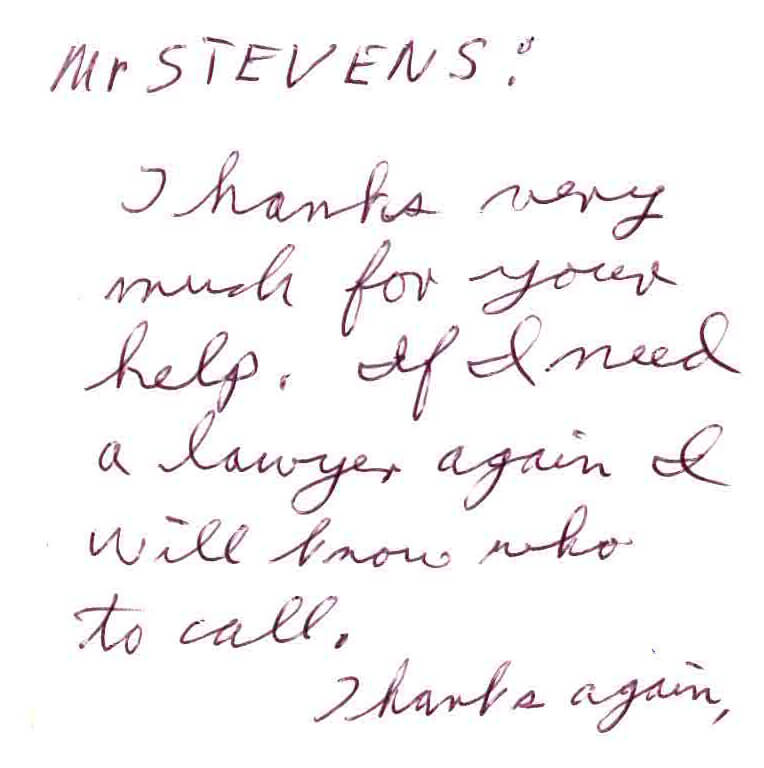 Mr STEVENS:
Thanks very
much for your
help. If I need
a lawyer again I
will know who
to call.
Thanks again,